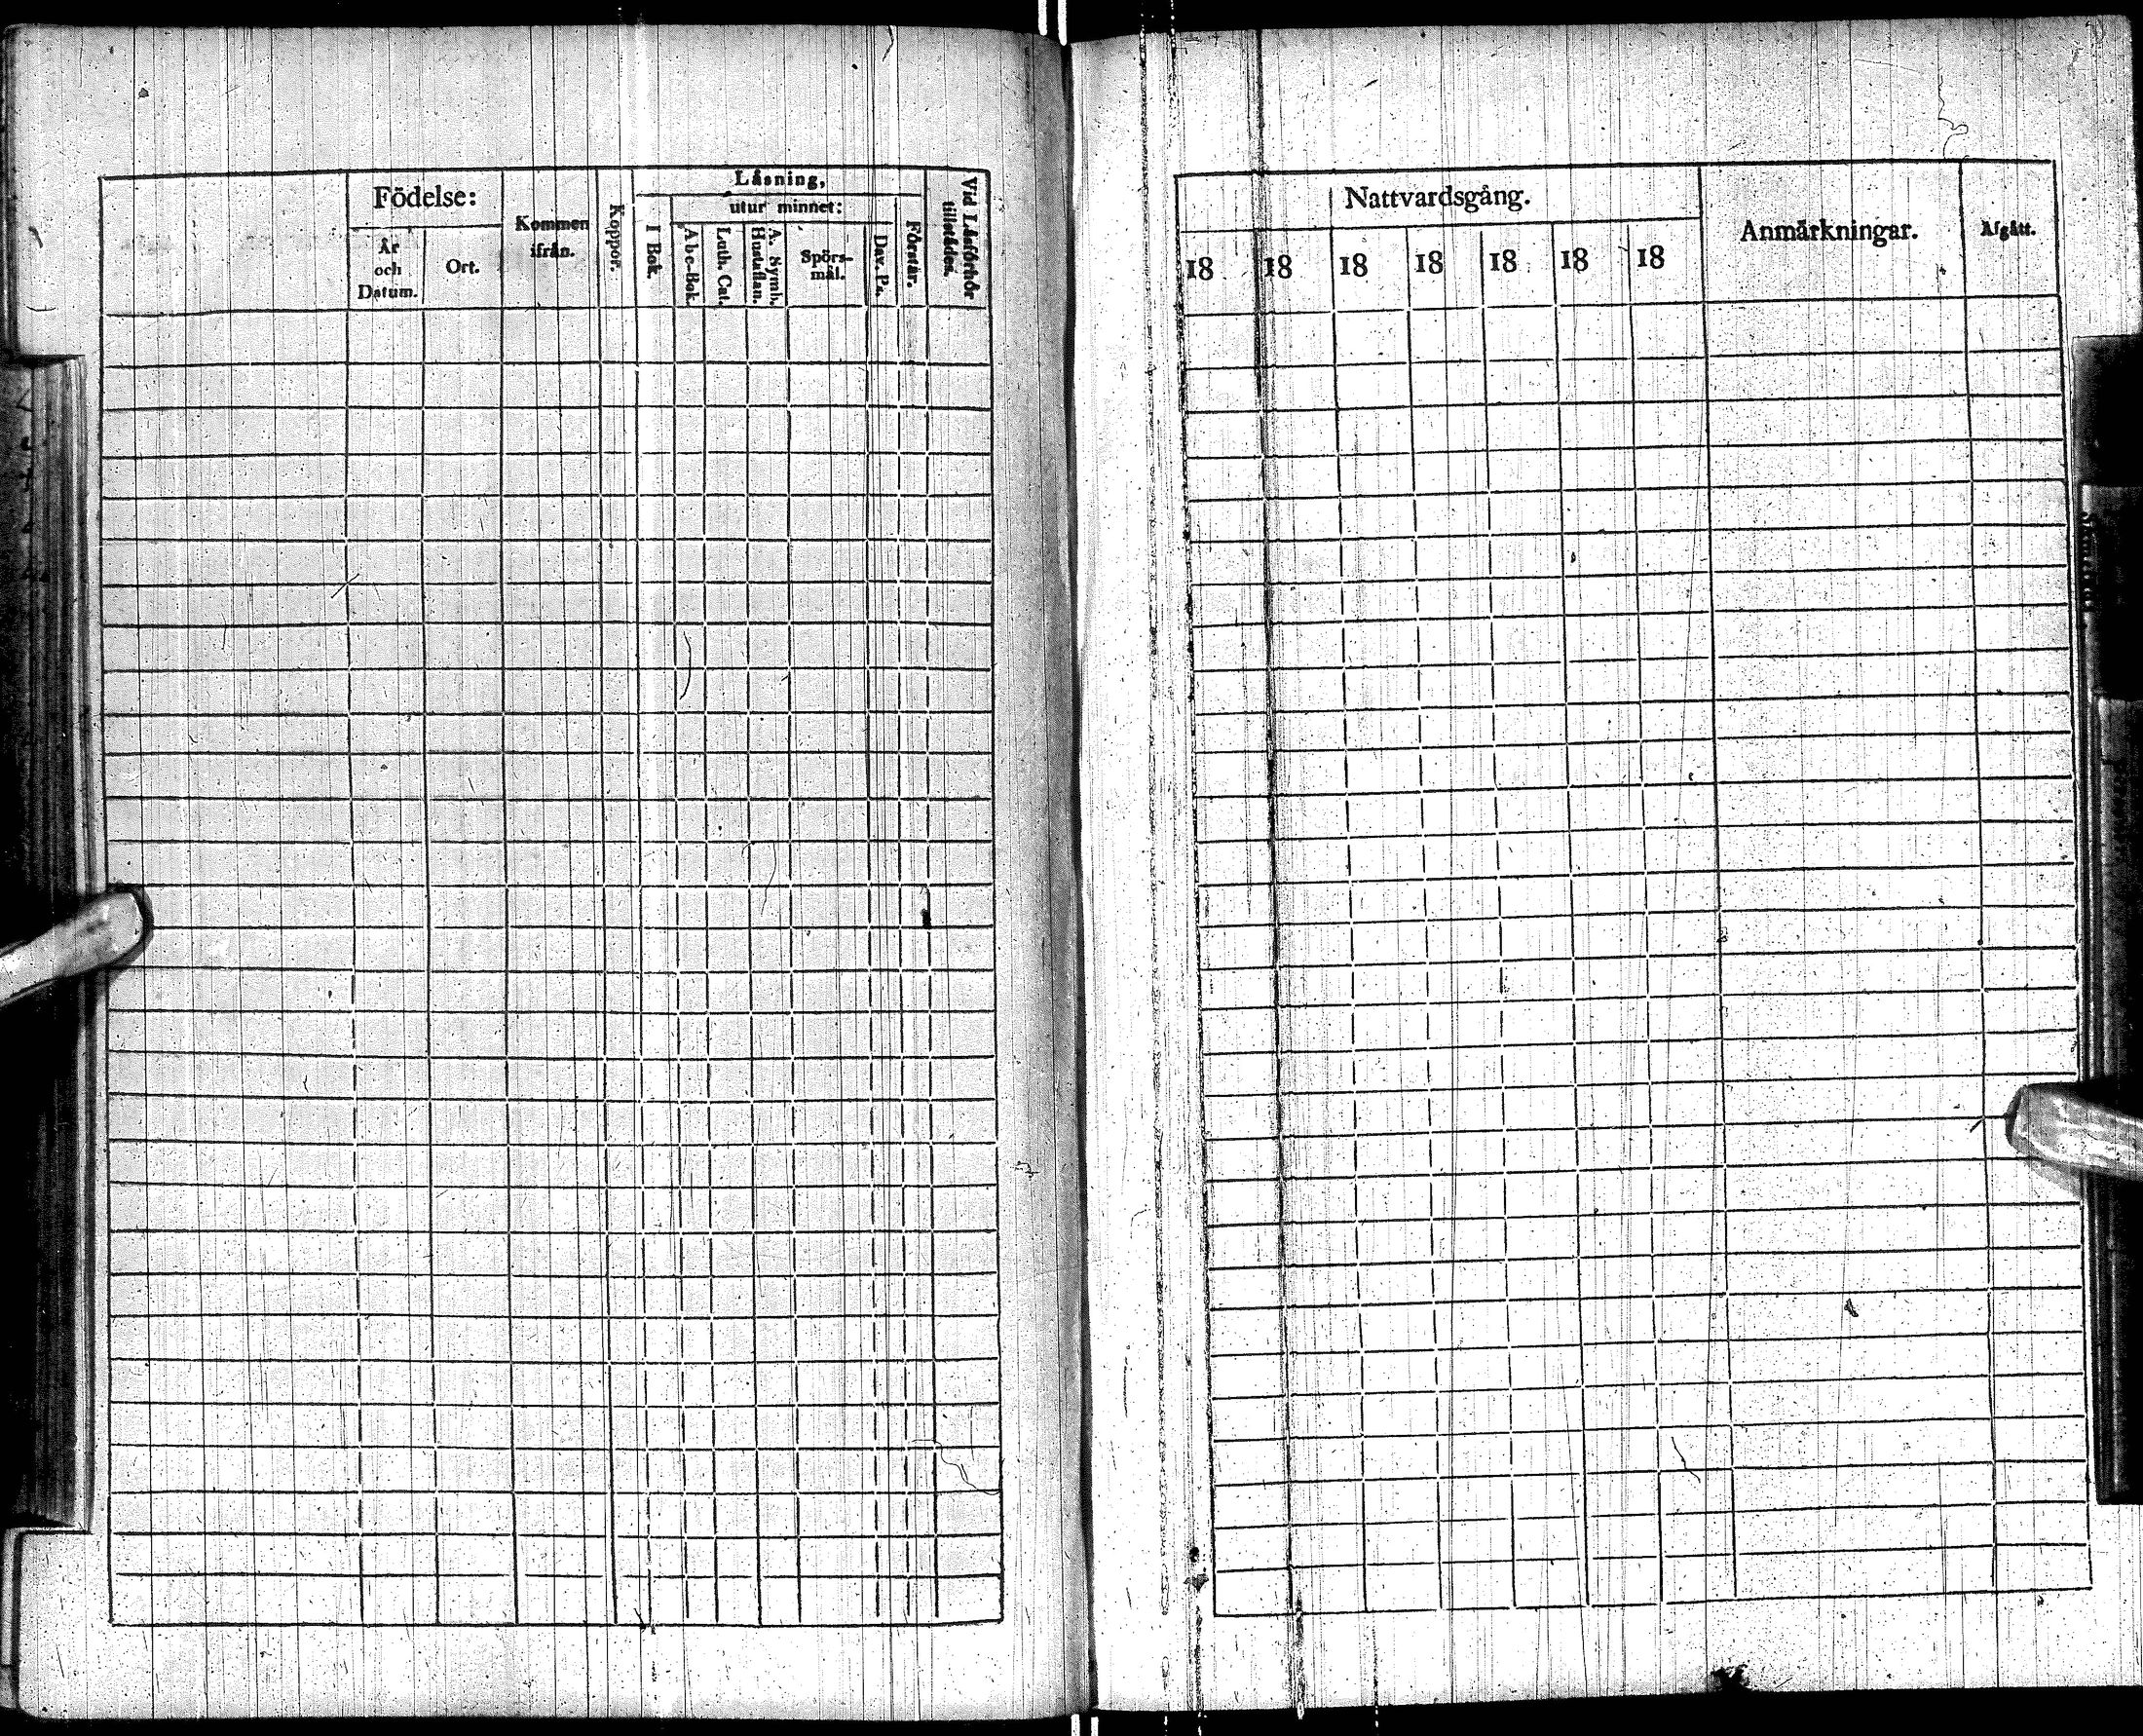 Födelse:
År
och
Datum.
Ort.
Kommen
ifrån.
Koppor.
Låsning,
I Bok.
utur minnet:
Abc-Bok.
Luth. Cat.
A. Symb.
Hustaflan.
Spörs-
mål.
Dav. Ps.
Förstår.
Vid Låsförhör
tillstädes.
Nattvardsgång.
18 18 18 18 18 18 18
Anmärkningar.
Afgått.